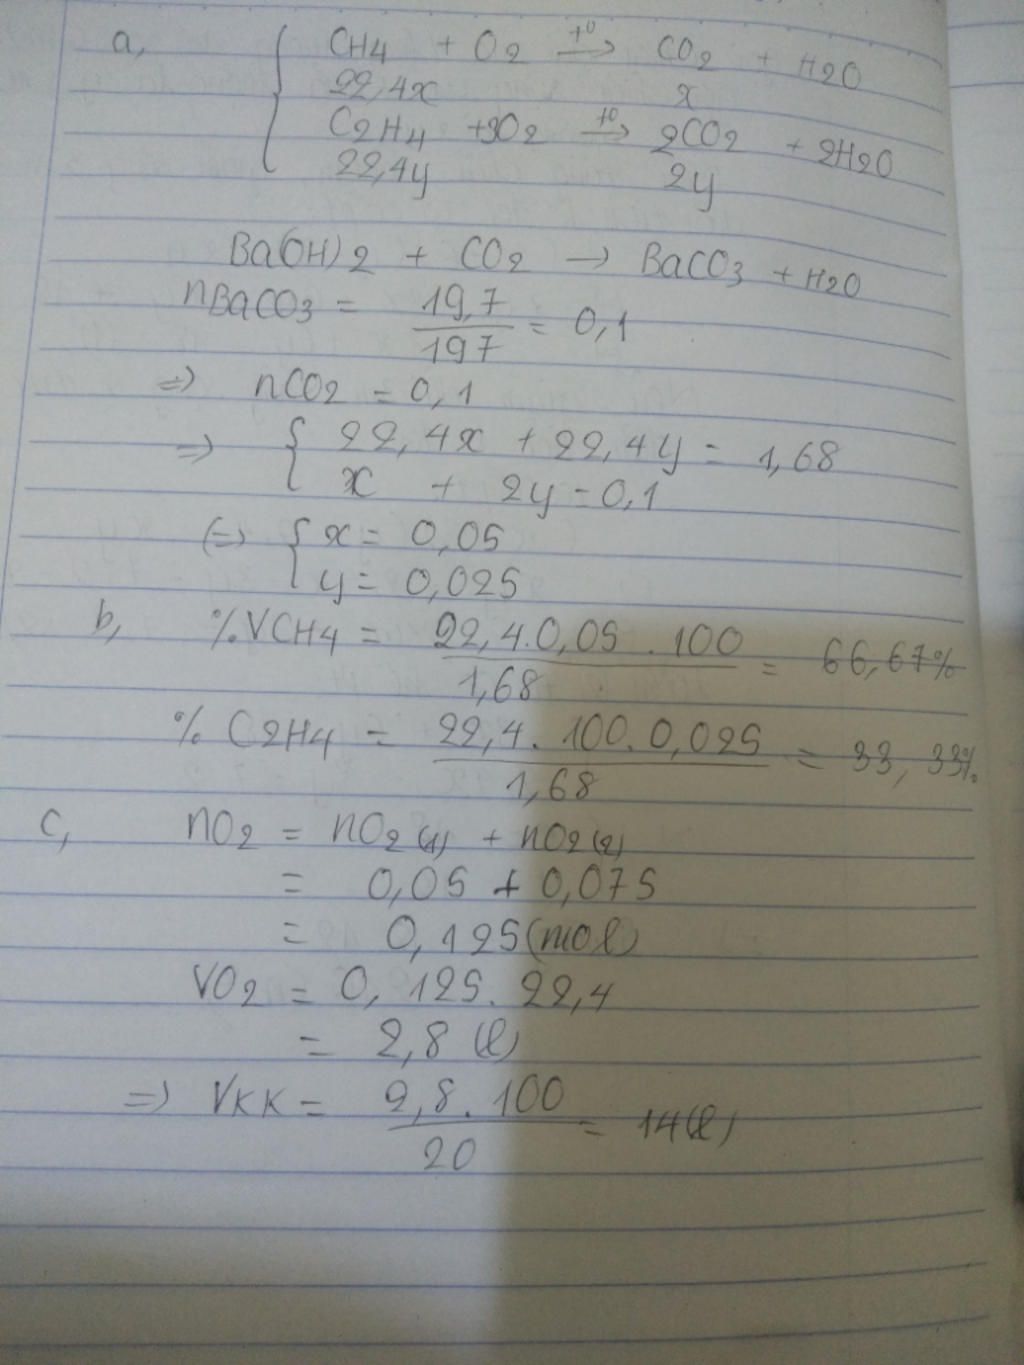 a, CH4 + O2 t0→ CO2 + H2O
22,4x x
C2H4 +3O2 t0→ 2CO2 + 2H2O
22,4y 2y
Ba(OH)2 + CO2 → BaCO3 + H2O
nBaCO3 = 19,7/197 = 0,1
=> nCO2 = 0,1
=> { 22,4x + 22,4y = 1,68
x + 2y = 0,1
(=) { x = 0,05
y = 0,025
b, %VCH4 = 22,4.0,05 . 100/1,68 = 66,67%
% C2H4 = 22,4. 100. 0,025/1,68 = 33,33%
c, nO2 = nO2(1) + nO2(2)
= 0,05 + 0,075
= 0,125(mol)
VO2 = 0,125. 22,4
= 2,8 (l)
=> VKK = 2,8. 100/20 = 14(l)